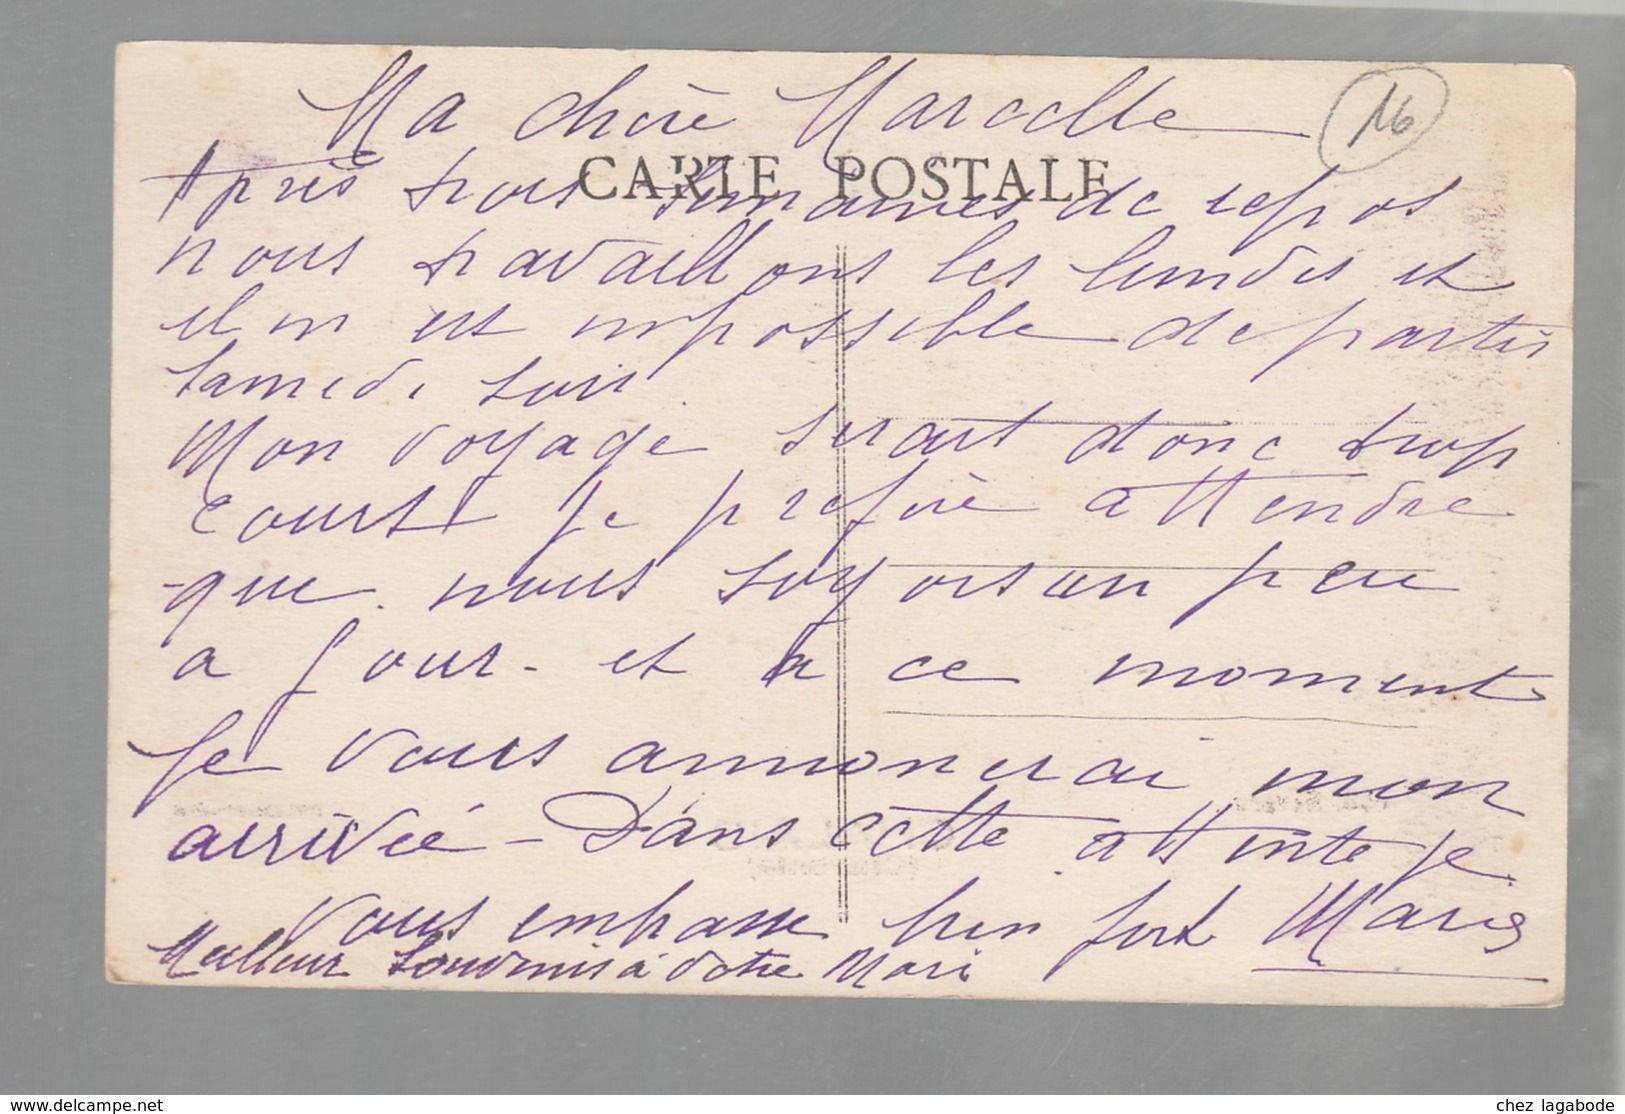 Ma chère Marcelle
16
CARTE POSTALE
Après trois semaines de repos
nous travaillons les lundis et
il m est impossible de partir
samedi soir
Mon voyage serait donc trop
court je prefère attendre
que nous soyons un peu
a jour - et a ce moment
Je vous annoncerai mon
arrivée - Dans cette attente je
vous embrasse bien fort Marie
Meilleur souvenirs à votre Mari
www.delcampe.net
chez lagabode